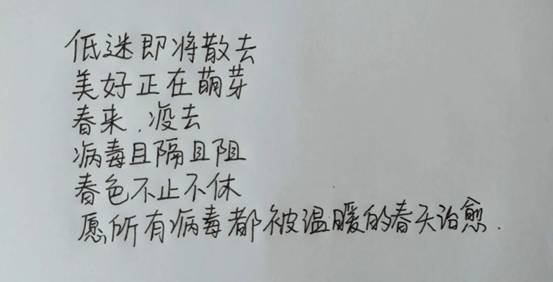 低迷即将散去
美好正在萌芽
春来.疫去
病毒且隔且阻
春色不止不休
愿所有病毒都被温暖的春天治愈.